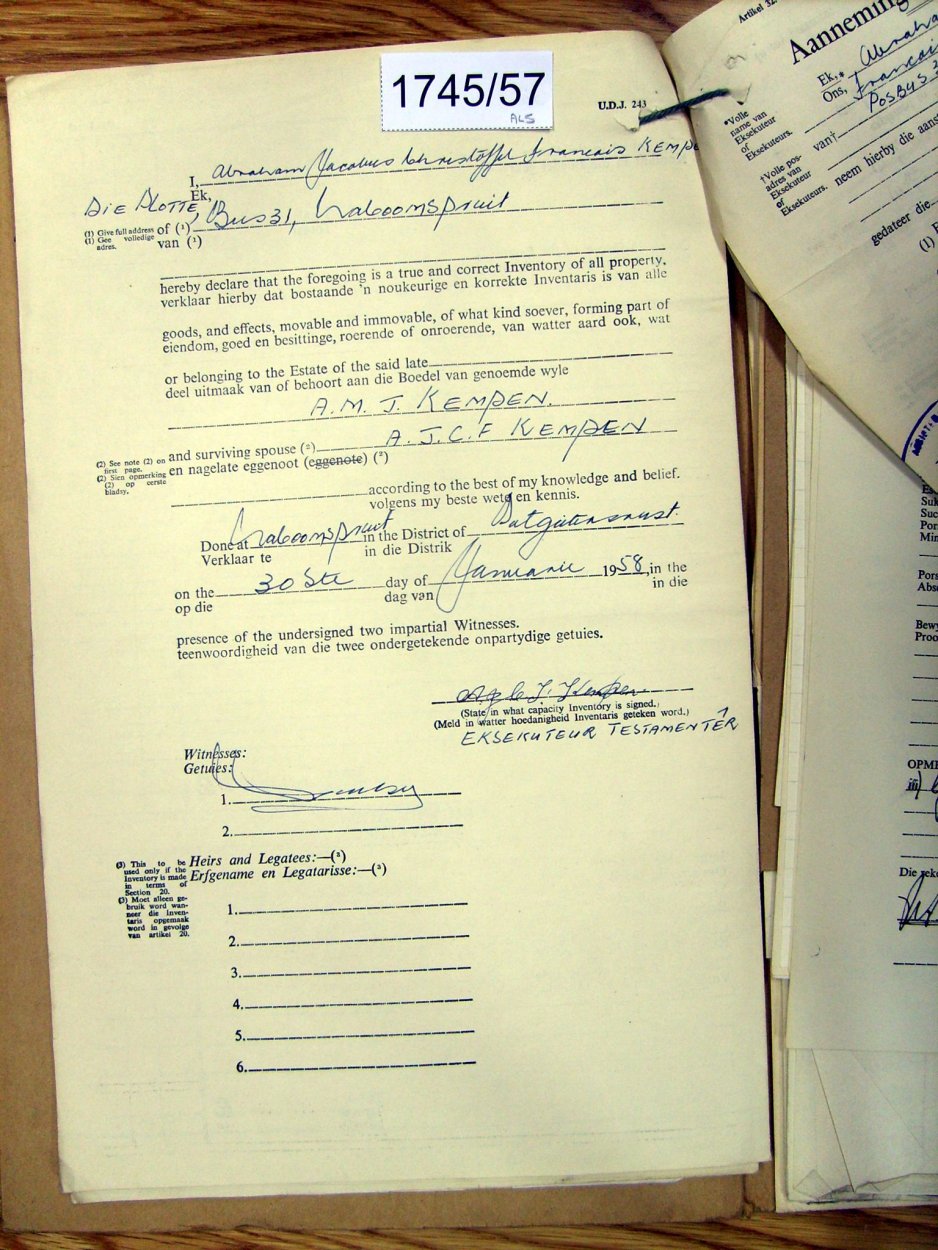 1745/57
ALS
U.D.J. 243
I, Abraham Jacobus Christoffel Francois KEMPE
Ek,
DIE PLOTTE,
(1) Give full address of (¹) Bus 31, Naboomspruit
(1) Gee volledige adres. van (¹)
hereby declare that the foregoing is a true and correct Inventory of all property,
verklaar hierby dat bostaande 'n noukeurige en korrekte Inventaris is van alle
goods, and effects, movable and immovable, of what kind soever, forming part of
eiendom, goed en besittinge, roerende of onroerende, van watter aard ook, wat
or belonging to the Estate of the said late
deel uitmaak van of behoort aan die Boedel van genoemde wyle
A.M. J. KEMPEN.
(2) See note (2) on first page. and surviving spouse (²) A.J.C.F KEMPEN
(2) Sien opmerking (2) op eerste bladsy. en nagelate eggenoot (eggenote) (²)
according to the best of my knowledge and belief.
volgens my beste wete en kennis.
Done at Naboomspruit in the District of Potgietersrust
Verklaar te in die Distrik
on the 30 Ste day of Januarie 1958, in the
op die dag van in die
presence of the undersigned two impartial Witnesses.
teenwoordigheid van die twee ondergetekende onpartydige getuies.
(State in what capacity Inventory is signed.)
(Meld in watter hoedanigheid Inventaris geteken word.)
EKSEKUTEUR TESTAMENTÊR
Witnesses:
Getuies:
1.
2.
(3) This to be used only if the Inventory is made in terms of Section 20.
(3) Moet alleen gebruik word wanneer die Inventaris opgemaak word in gevolge van artikel 20.
Heirs and Legatees:—(³)
Erfgename en Legatarisse:—(³)
1.
2.
3.
4.
5.
6.
Artikel 32.
Aanneming
Ek,* Abraha
Ons, Francoi
POSBUS 3
*Volle naam van Eksekuteur of Eksekuteurs.
van†
†Volle posadres van Eksekuteur of Eksekuteurs.
neem hierby die aans
gedateer die
(1) E
Suk
Suc
Por
Min
Pors
Abs
Bewy
Proo
OPM
Die reke